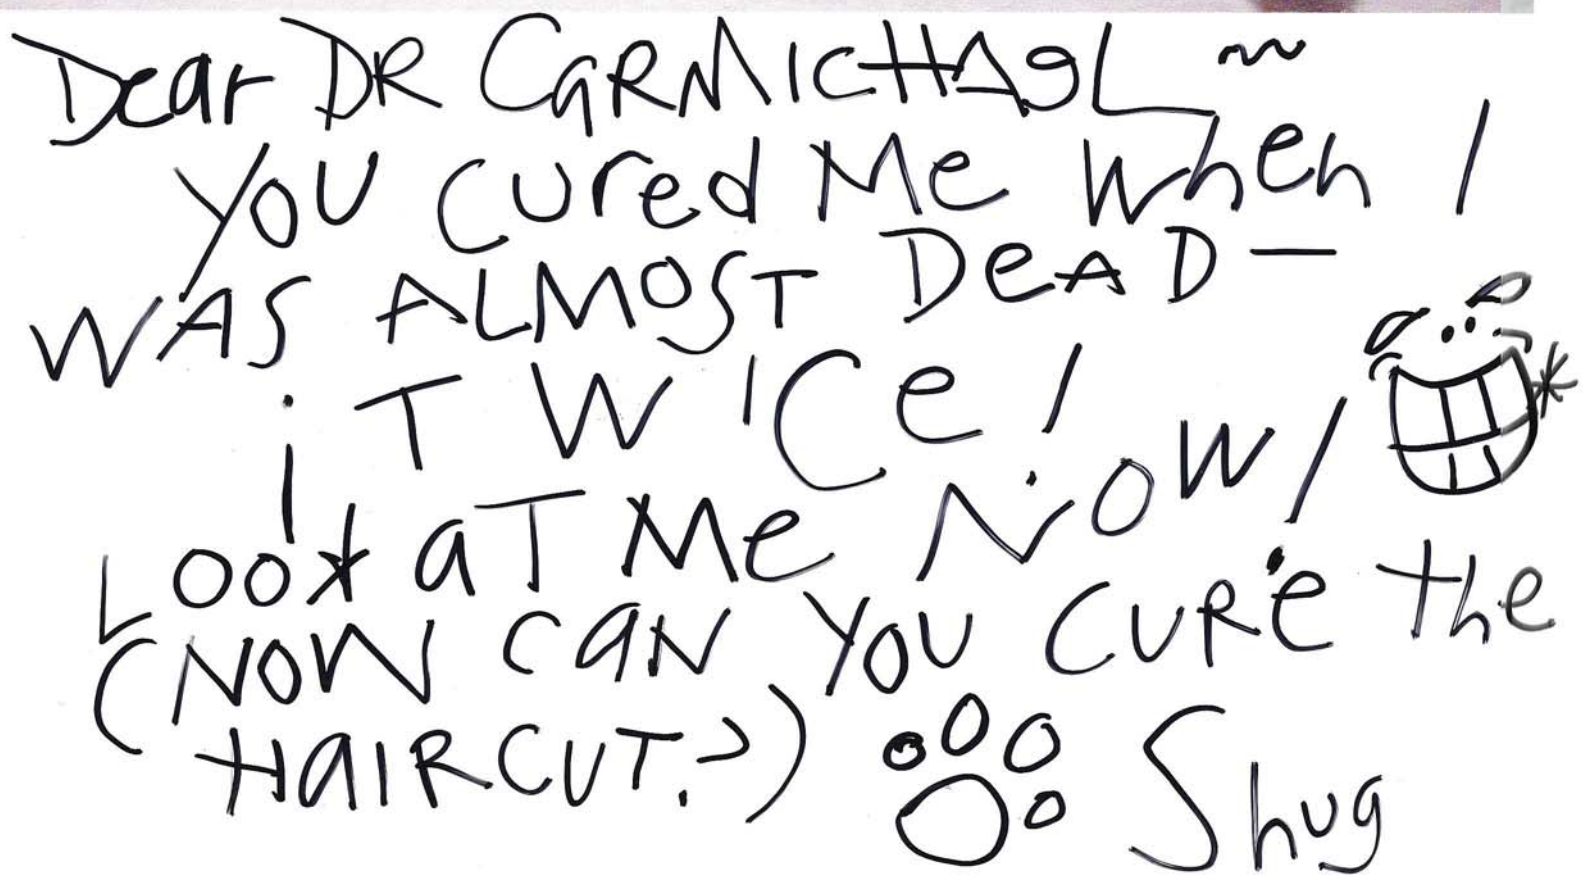 Dear DR CARMICHAEL ~
YOU CURED Me When I
WAS ALMOST DeAD —
TWICe!
LOOK aT Me NOW!
(NOW CAN YOU CURE the
HAIRCUT?)
Shug